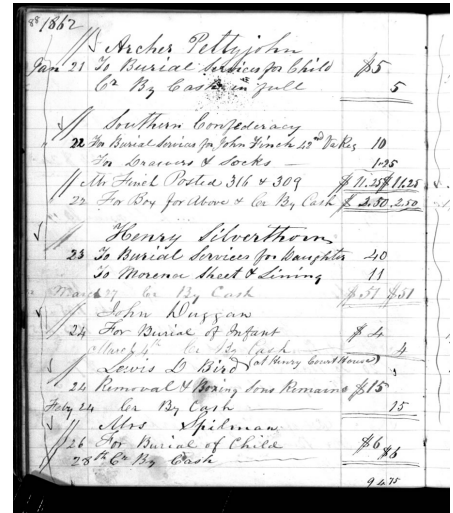 88 1862
Archer Pettyjohn
Jan 21 To Burial Services for Child $5
Cr By Cash in full 5
Southern Confederacy
22 For Burial Services for John Finch 42nd Va Reg 10
For Drawers & Socks 1.25
Mr Finch Posted 316 & 309 $11.25 $11.25
22 For Box for Above & Cr By Cash $2.50 2.50
Henry Silverthorn
23 To Burial Services for Daughter 40
To Morena Sheet & Lining 11
March 27 Cr By Cash $51 $51
John Duggan
24 For Burial of Infant $4
March 4th Cr By Cash 4
Lewis D Bird (at Henry Court House)
24 Removal & Boxing Sons Remains $15
Feby 24 Cr By Cash 15
Mrs Spilman
26 For Burial of Child $6
28th Cr By Cash $6
94.75